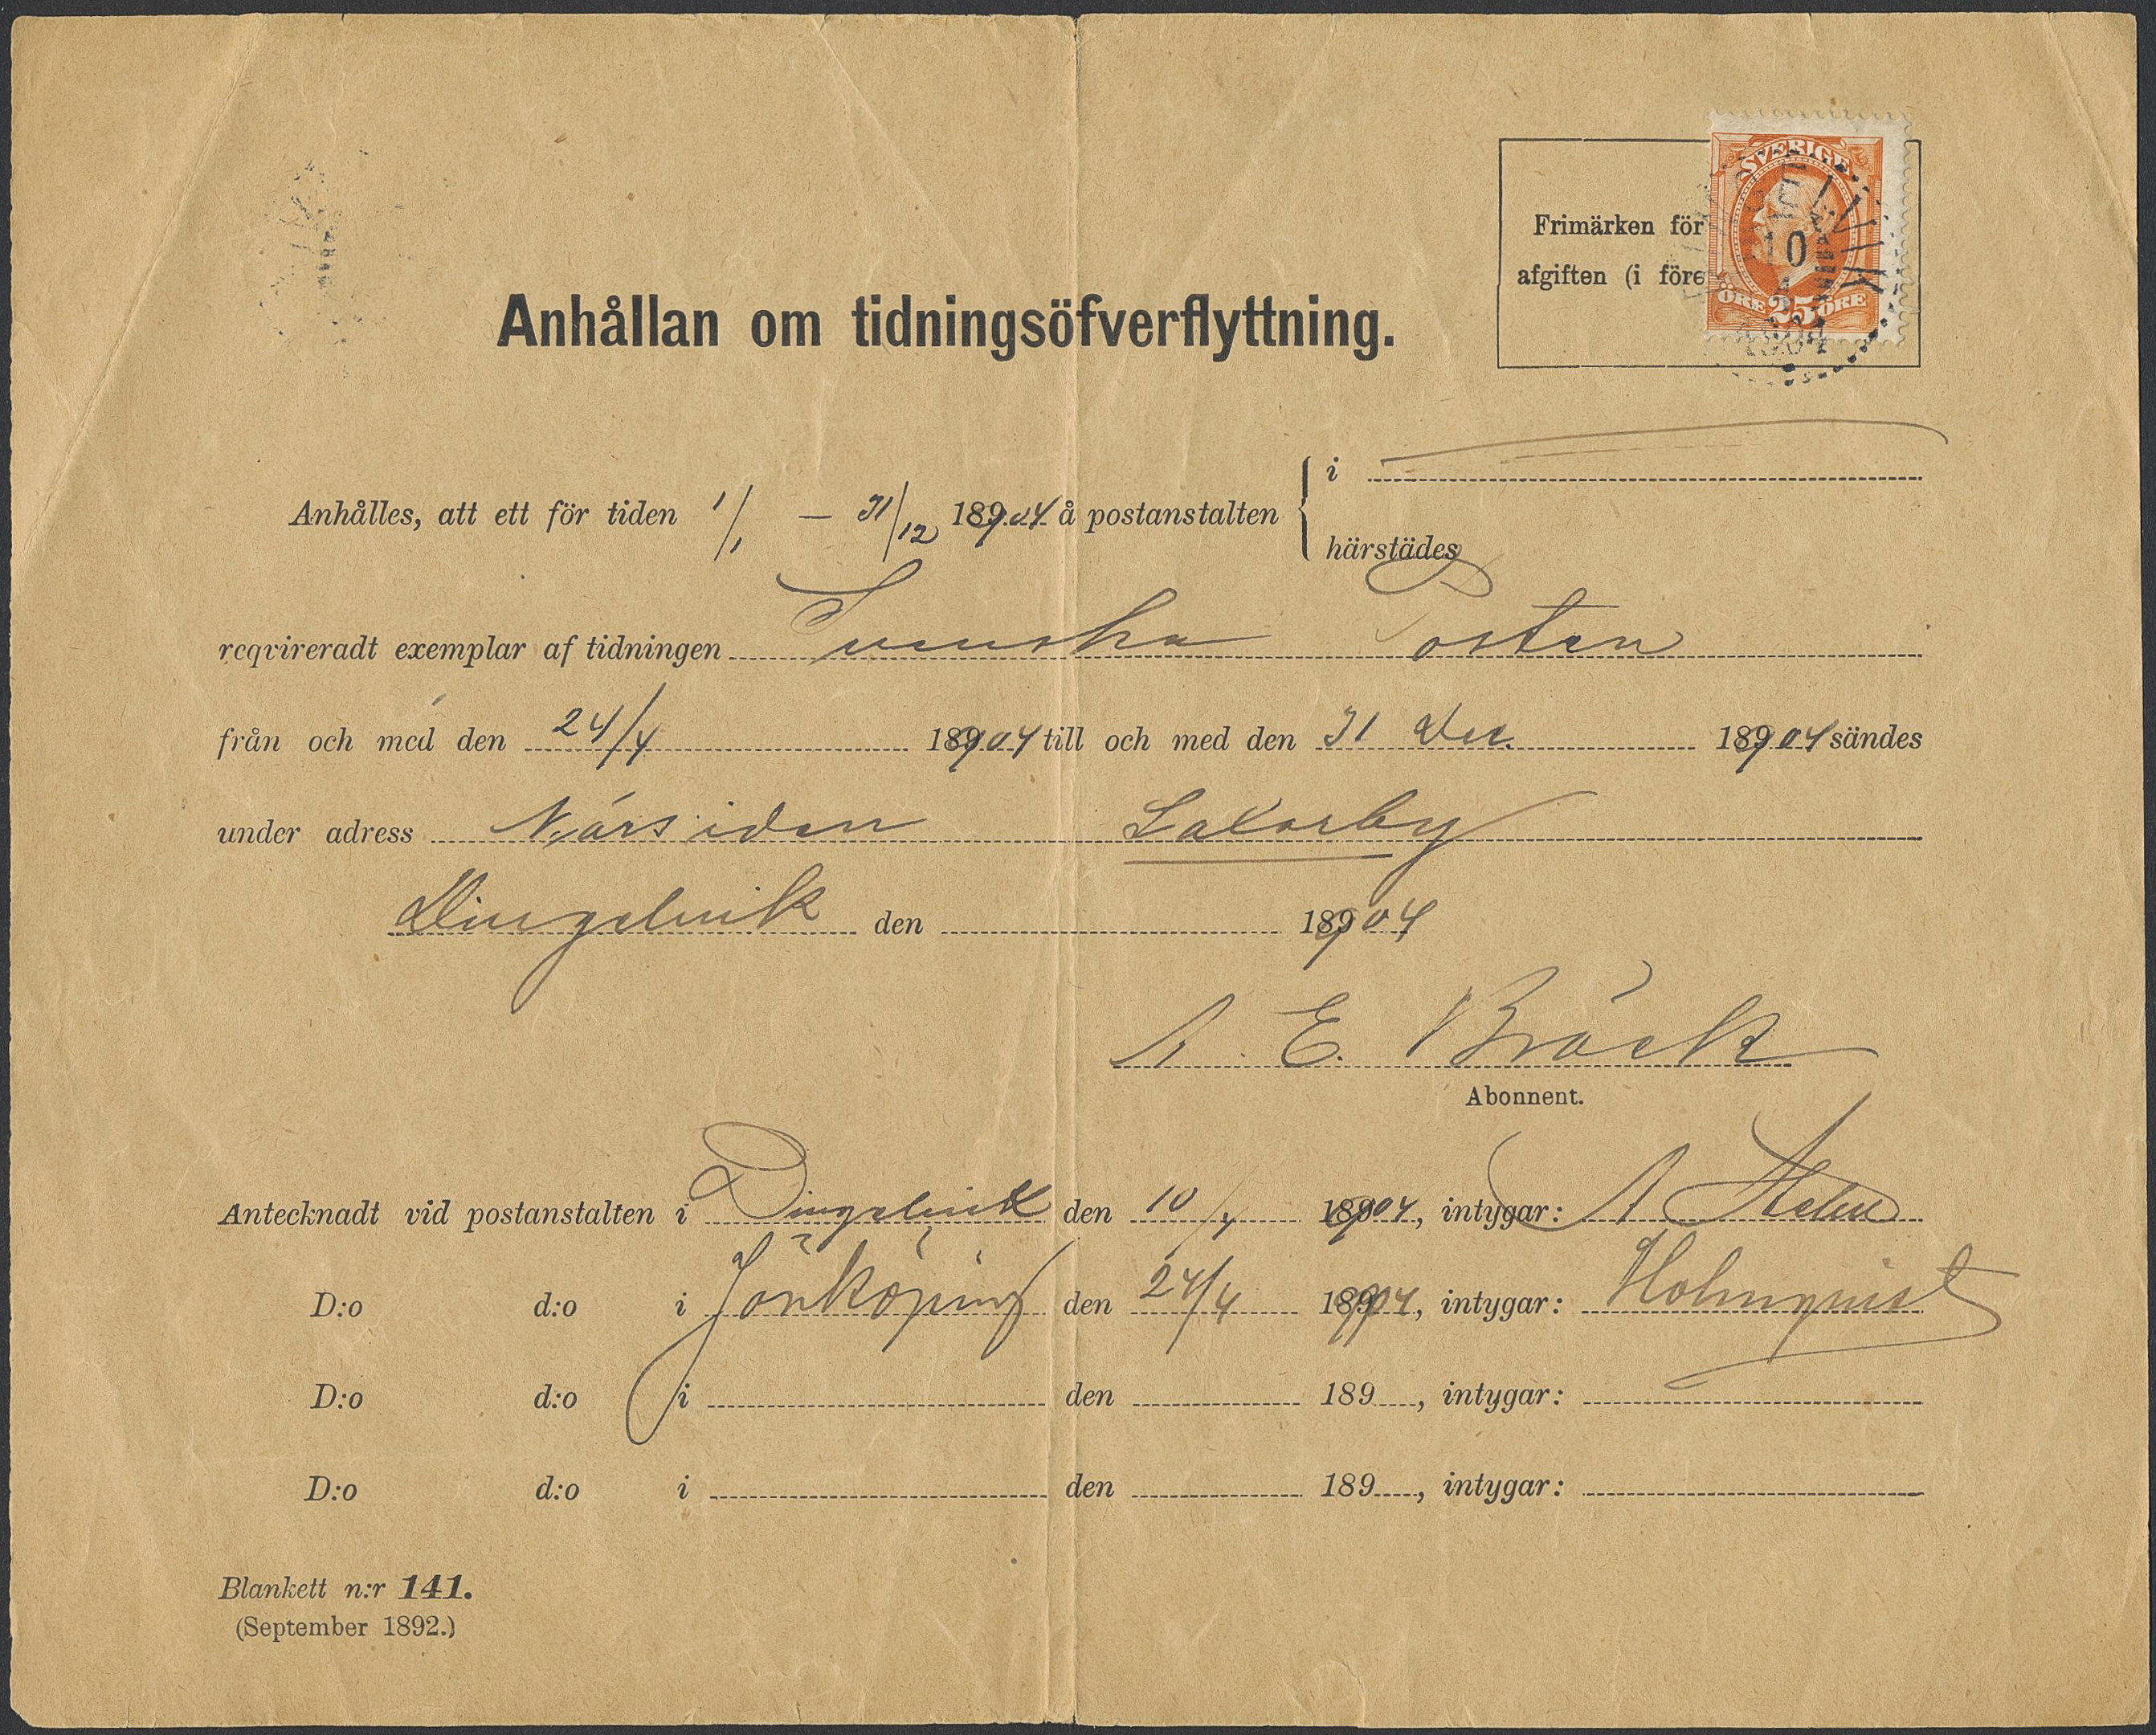 SVERIGE
ÖRE 25 ÖRE
10
1904
Frimärken för
afgiften (i före
Anhållan om tidningsöfverflyttning.
Anhålles, att ett för tiden 1/1 — 31/12 18904 å postanstalten { i
härstädes
reqvireradt exemplar af tidningen Svenska Posten
från och med den 24/4 18904 till och med den 31 Dec. 18904 sändes
under adress
Dingelvik den 18904
A. E. Bräck
Abonnent.
Antecknadt vid postanstalten i Dingelvik den 10/4 18904, intygar: A
D:o d:o i Jönköping den 24/4 18904, intygar: Holmqvist
D:o d:o i den 189 , intygar:
D:o d:o i den 189 , intygar:
Blankett n:r 141.
(September 1892.)